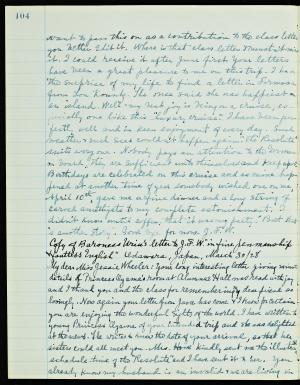 104
want to pass this on as a contribution to the class letter
you better edit it. Where is that class letter? I must not miss
it. I could receive it after June first. Your letters
have been a great pleasure to me on this trip. I had
the surprise of my life to find a letter in
from Lou Hornby. The ones said she was happiest on
an island. Well my next joy is being on a cruise, es-
pecially one like this " cruise". I have been per-
fectly well and in keen enjoyment of every day. Such
weather and such seas could it happen again. The "Resolute"
suits every one. Nobody pays any attention to the
on board. They are sufficient unto themselves and
Birthdays are celebrated on this cruise and as mine hap-
pened at another time of year somebody wished one on me,
April 10th, gave me a fine dinner and a long string of
carved amethysts to my complete astonishment. I
didn't know until after that it was my party. "But that
is another story". Good bye for now. J. F. W.
Copy of Baroness Uriu's letter to J. F. W. in fine penmanship
& faultless English" Odawara, Japan, March 30/28
My dear Miss Jessie Wheeler: Your long interesting letter giving minute
details of Princess Oyama's room at Alumnae Hall one read with joy
and I thank you and the class for remembering my deaf friend so
lovingly. Now again your letter from Java has come & I have pro
you are enjoying the wonderful sights of the world. I have written to
young Princess Oyama of your intended trip and she was delighted
at the news. She wishes to know the date of your arrival, so that her
sisters could all meet you. Mrs. kindly sent me the illustrated
schedule time of the "Resolute" and I have sent it to her. You
already know my husband is an invalid & we are living in